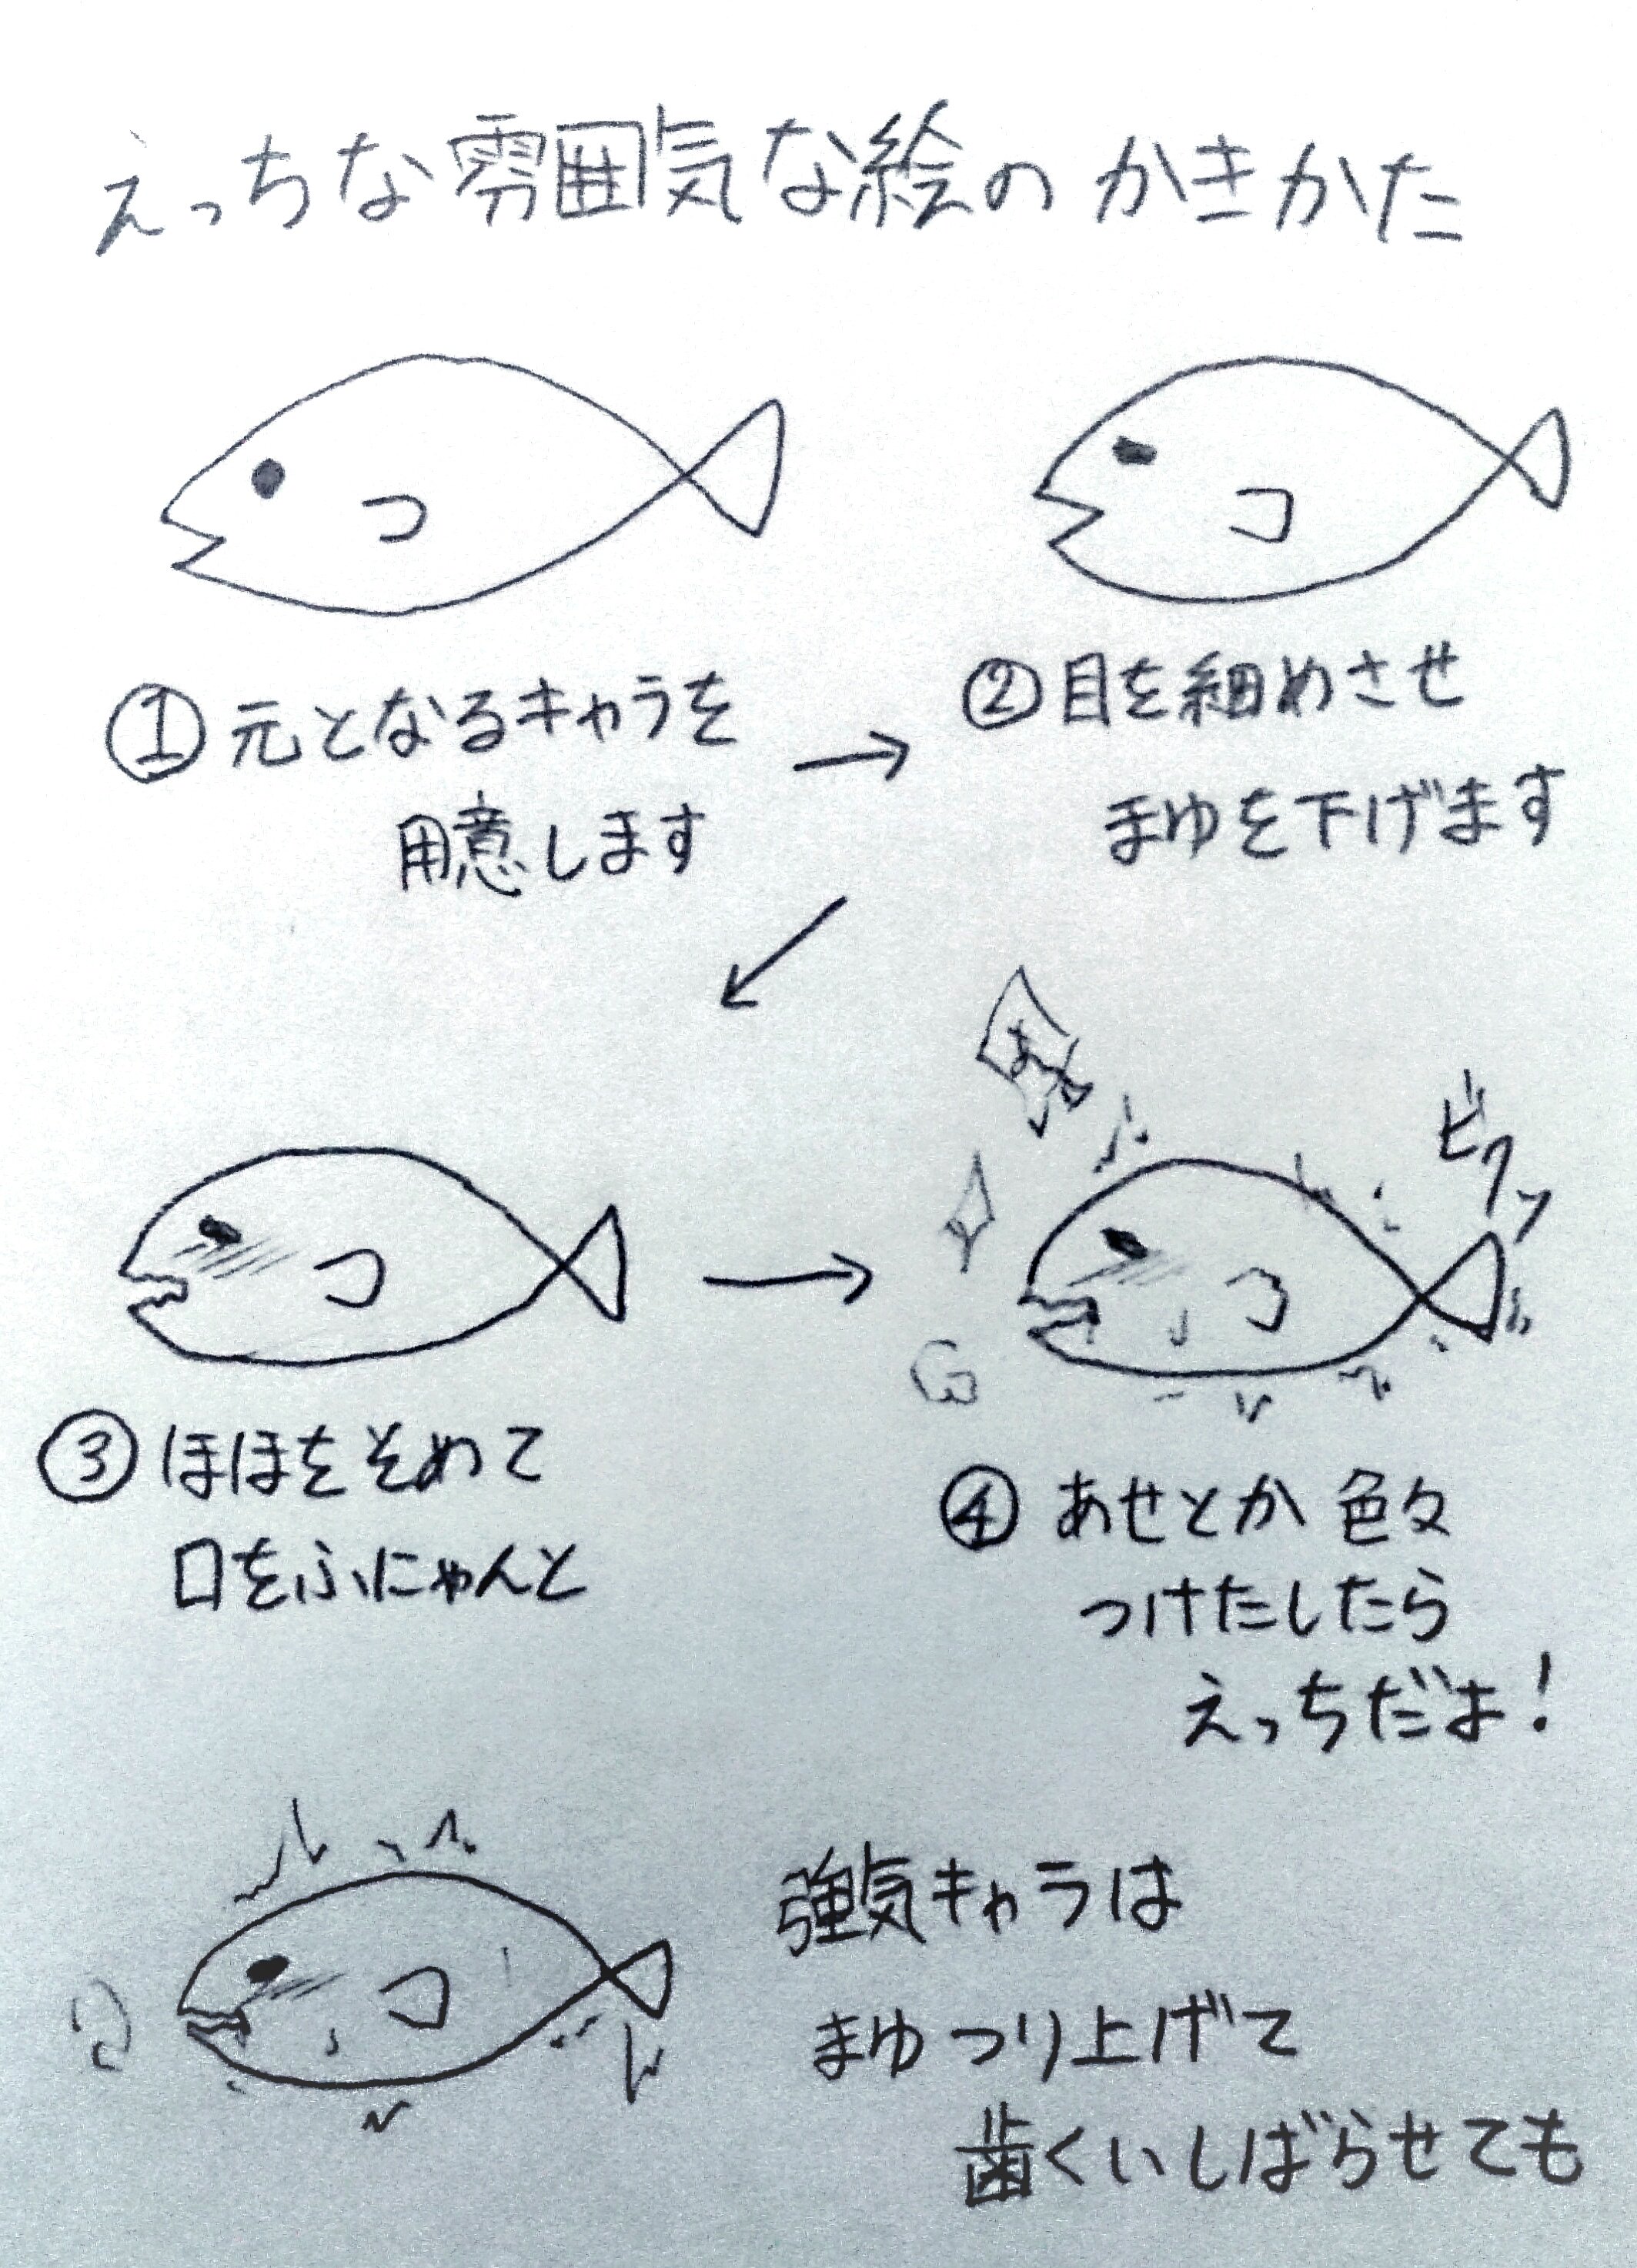 えっちな雰囲気な絵のかきかた
①元となるキャラを
用意します
→
②目を細めさせ
まゆを下げます
③ほほをそめて
口をふにゃんと
→
ビクッ
④あせとか色々
つけたしたら
えっちだよ!
強気キャラは
まゆつり上げて
歯くいしばらせても